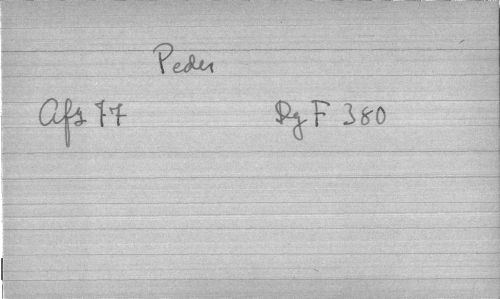 Peder
Afz 77 Rg F 380